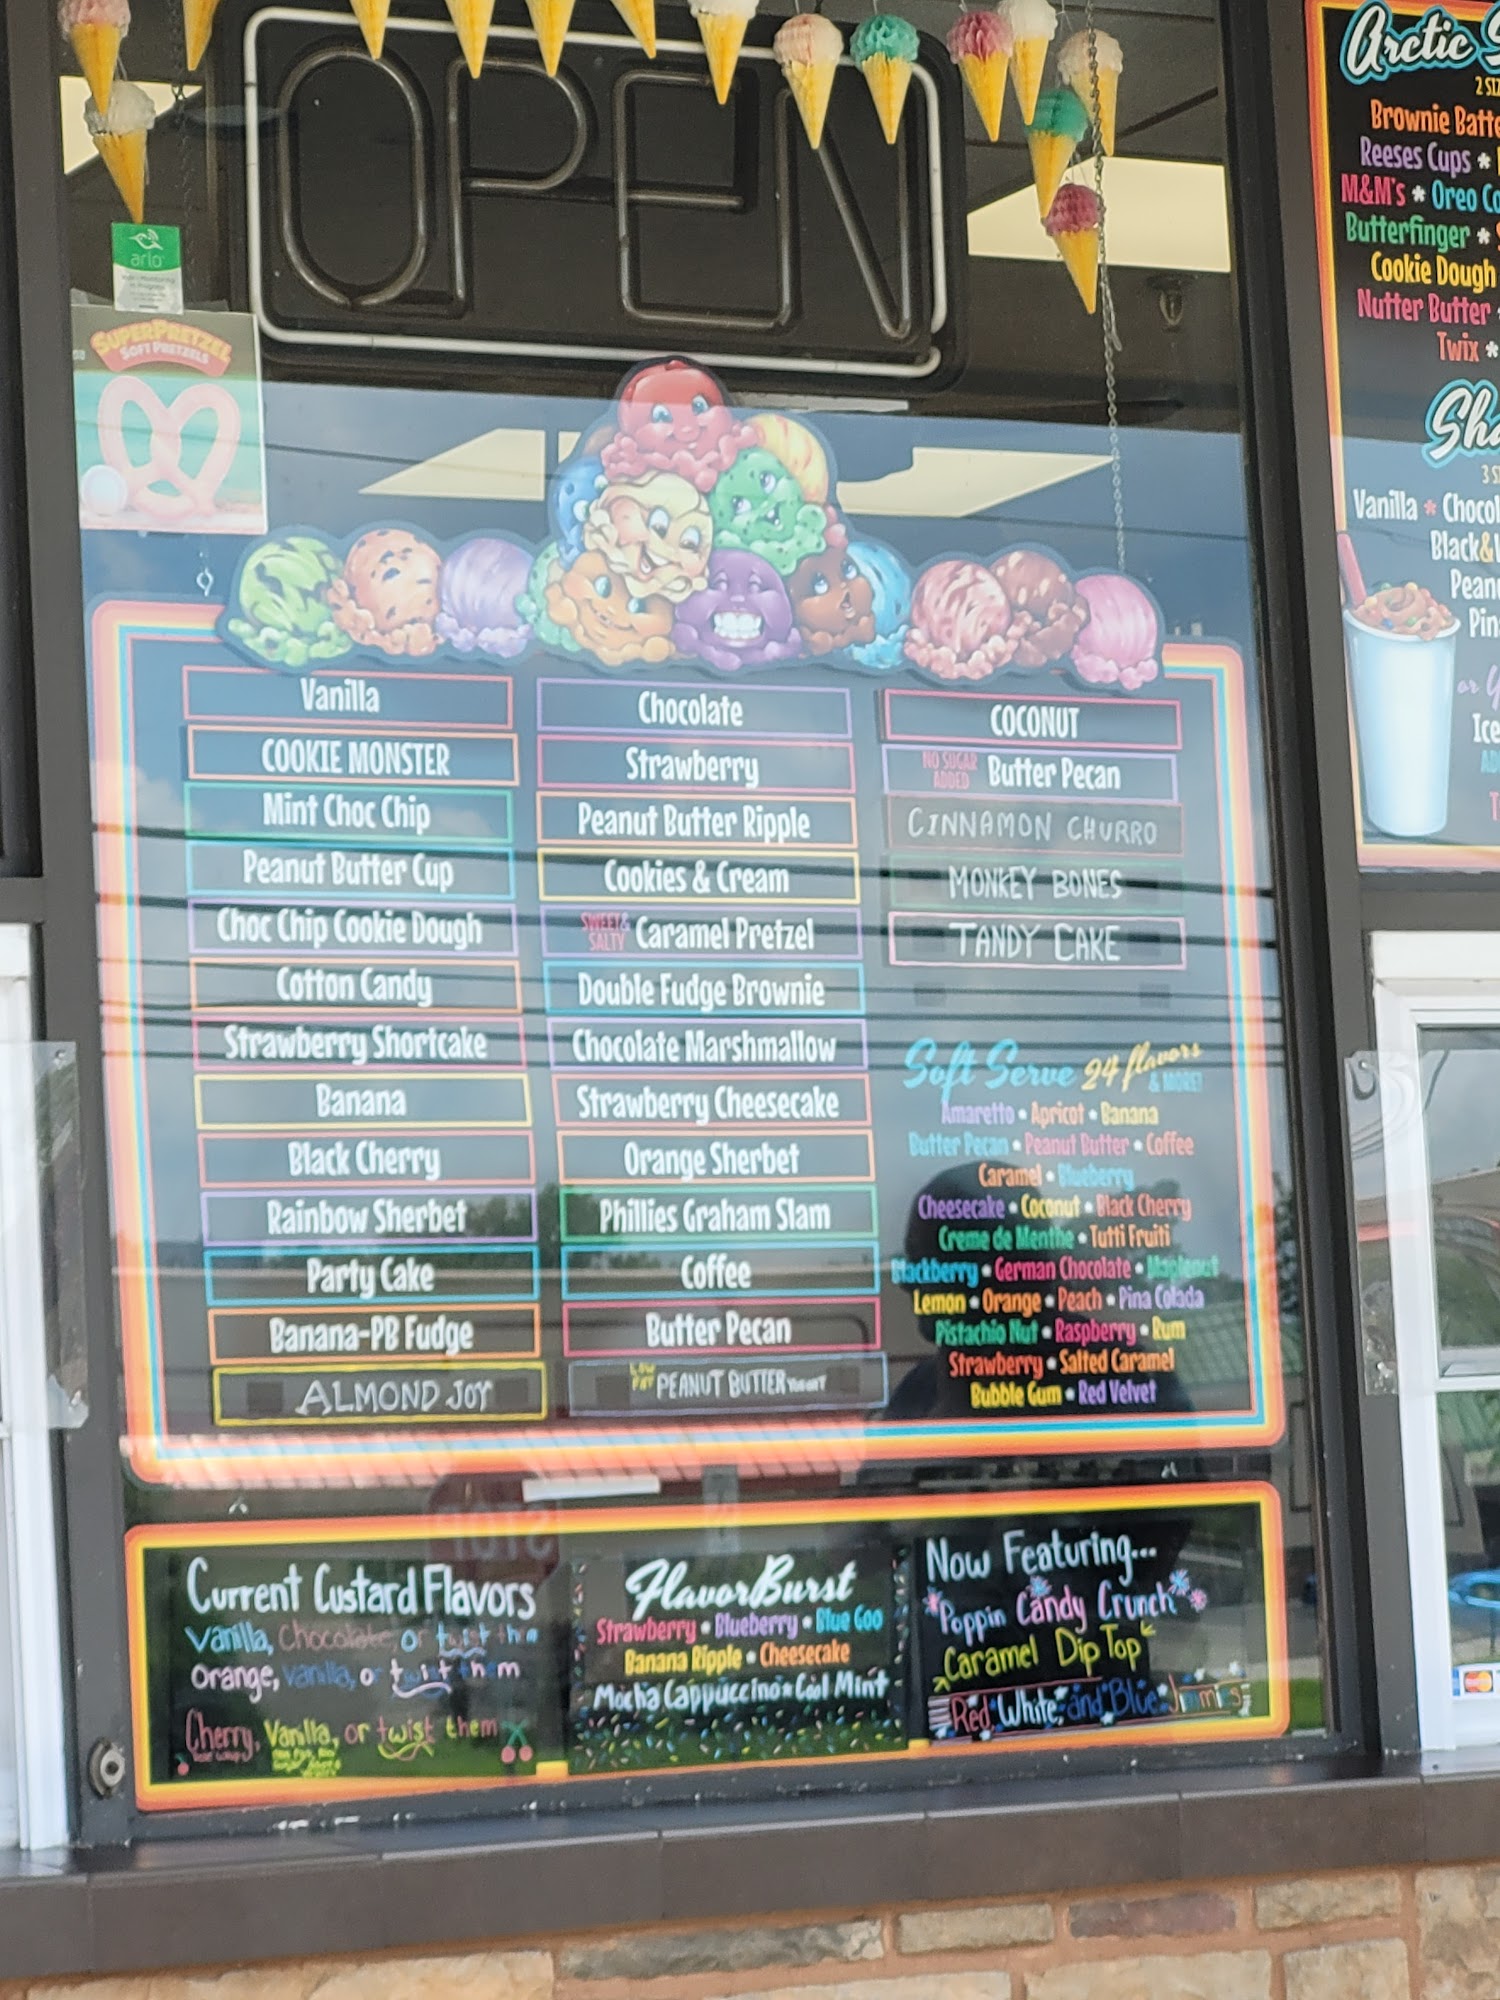 OPEN
arlo
SUPERPRETZEL
SOFT PRETZELS
Vanilla
COOKIE MONSTER
Mint Choc Chip
Peanut Butter Cup
Choc Chip Cookie Dough
Cotton Candy
Strawberry Shortcake
Banana
Black Cherry
Rainbow Sherbet
Party Cake
Banana-PB Fudge
ALMOND JOY
Chocolate
Strawberry
Peanut Butter Ripple
Cookies & Cream
SWEET & SALTY Caramel Pretzel
Double Fudge Brownie
Chocolate Marshmallow
Strawberry Cheesecake
Orange Sherbet
Phillies Graham Slam
Coffee
Butter Pecan
LOW FAT PEANUT BUTTER YOGURT
COCONUT
NO SUGAR ADDED Butter Pecan
CINNAMON CHURRO
MONKEY BONES
TANDY CAKE
Soft Serve 24 flavors & MORE!
Amaretto • Apricot • Banana
Butter Pecan • Peanut Butter • Coffee
Caramel • Blueberry
Cheesecake • Coconut • Black Cherry
Creme de Menthe • Tutti Fruiti
Blackberry • German Chocolate • Maplenut
Lemon • Orange • Peach • Pina Colada
Pistachio Nut • Raspberry • Rum
Strawberry • Salted Caramel
Bubble Gum • Red Velvet
Current Custard Flavors
Vanilla, Chocolate, or twist them
Orange, Vanilla, or twist them
Cherry, Vanilla, or twist them
FlavorBurst
Strawberry • Blueberry • Blue Goo
Banana Ripple • Cheesecake
Mocha Cappuccino • Cool Mint
Now Featuring...
Poppin Candy Crunch
Caramel Dip Top
Red, White, and Blue Jimmies
Arctic
Brownie
Reeses Cups *
M&M's * Oreo
Butterfinger *
Cookie Dough
Nutter Butter
Twix *
Vanilla *